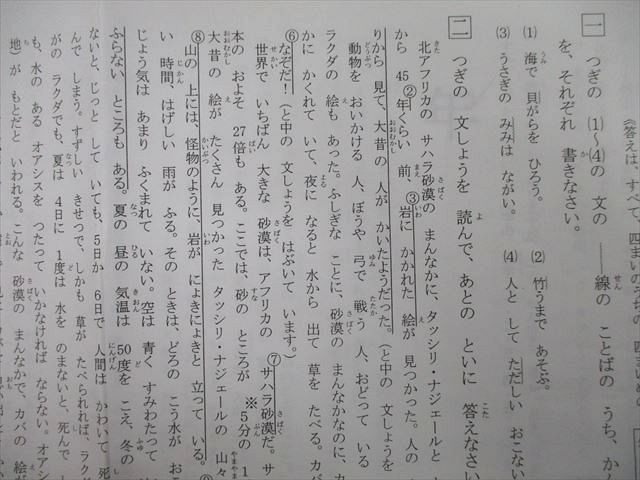 《答えは、すべて、四まいのうちの、四まい
一 つぎの 文の (1)~(4)の ――線の ことばの うち、かん
を、それぞれ 書きなさい。
(1) 海で 貝がらを ひろう。 (2) 竹うまで あそぶ。
(3) うさぎの みみは ながい。 (4) 人と して ただしい おこない
二 つぎの 文しょうを 読んで、あとの といに 答えなさい
北アフリカの サハラ砂漠の まんなかに、タッシリ・ナジェールと
から 45②年くらい 前、③岩に かかれた 絵が 見つかった。人の
りから 見て、大昔の 人が かいたようだった。(と中の 文しょうを
動物を おいかける 人、ぼうや 弓で 戦う 人、おどって いる
ラクダの 絵も あった。ふしぎな ことに、砂漠の まんなかなのに、
かに かくれて いて、夜に なると 水から 出て 草を たべる。カバ
⑥なぞだ!(と中の 文しょうを はぶいて います。)
世界で いちばん 大きな 砂漠は、アフリカの ⑦サハラ砂漠だ。サ
本の およそ 27倍も ある。ここでは、砂の ところが ※5分の 1
大昔の 絵が たくさん 見つかった タッシリ・ナジェールの 山々
⑧山の 上には、怪物のように、岩が にょきにょきと 立って いる。
い 時間、はげしい 雨が ふる。その ときは、どろの こう水が お
じょう気は あまり ふくまれて いない。空は 青く すみわたって
ふらない ところも ある。夏の 昼の 気温は 50度を こえ、冬の
ないと、じっと して いても、5日か 6日で 人間は かわいて 死
んで しまう。すずしい きせつで、しかも 草が たべられれば、ラクダ
がの ラクダでも、夏は 4日に 1度は 水を のまないと、死んで し
も、水の ある オアシスを つたって いかなければ ならない。オアシ
地)が もとだと いわれる。こんな 砂漠の まんなかで、カバの 絵が